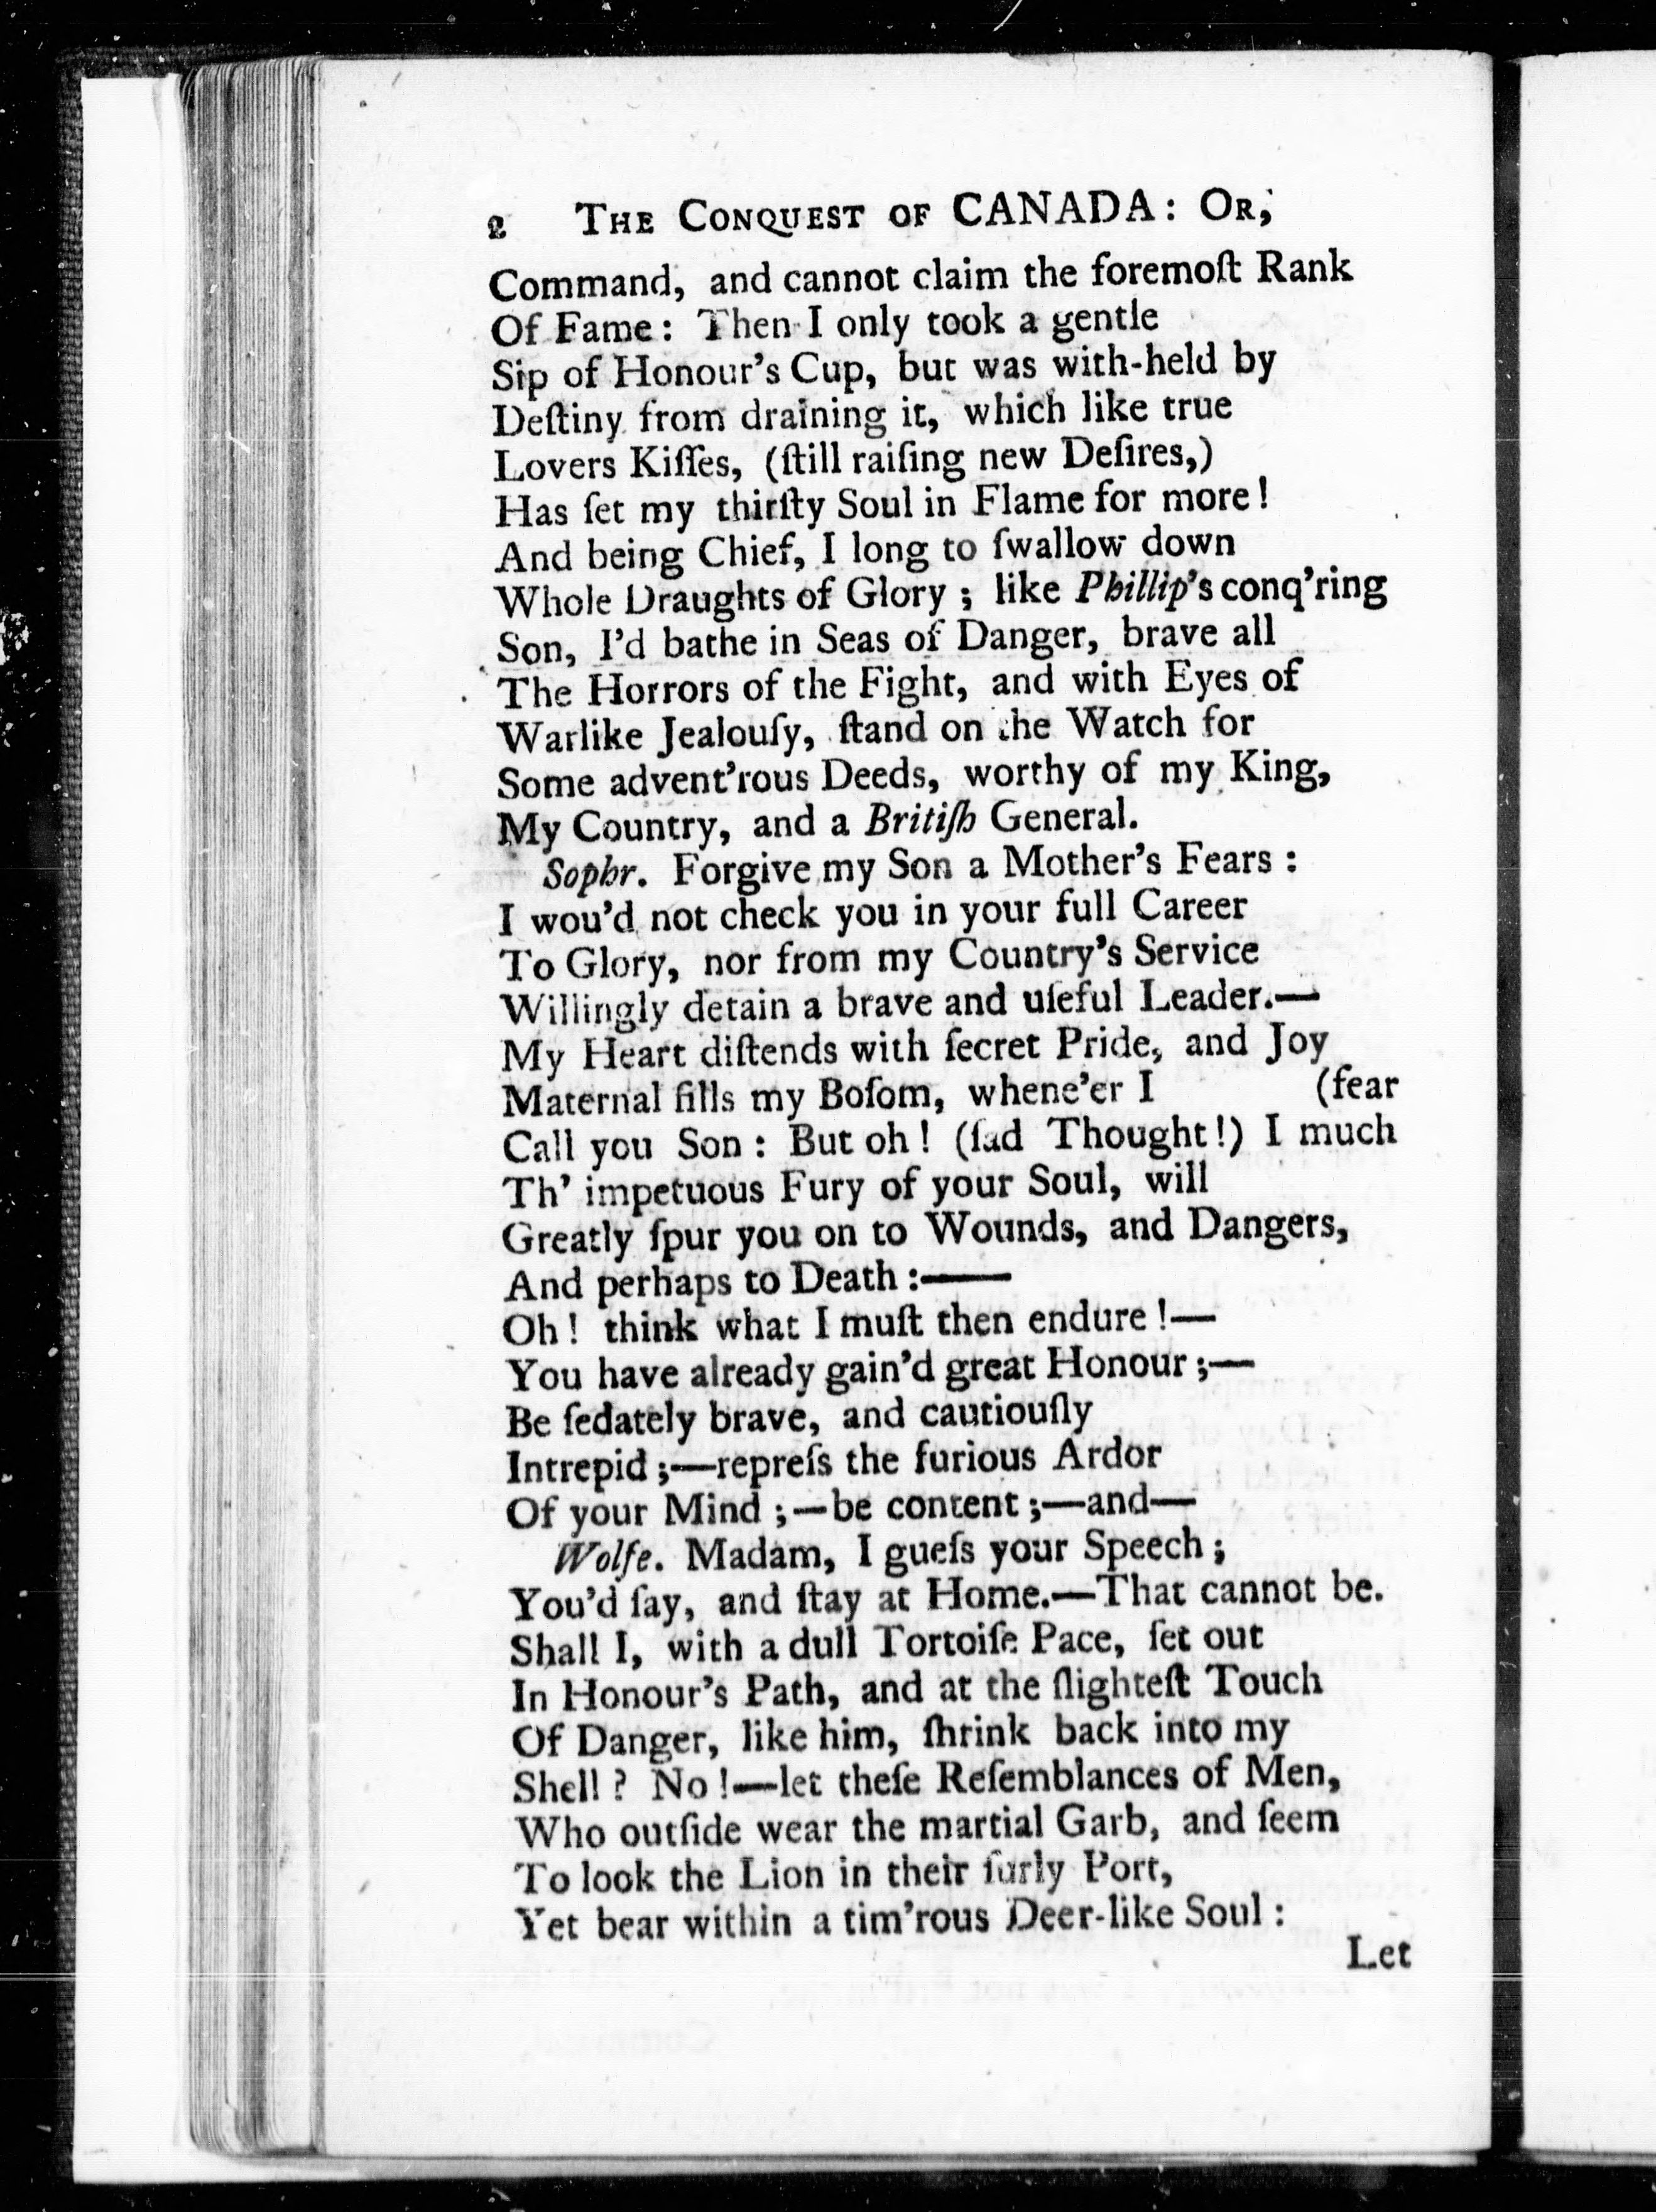 2 THE CONQUEST OF CANADA: OR,
Command, and cannot claim the foremoſt Rank
Of Fame: Then I only took a gentle
Sip of Honour's Cup, but was with-held by
Deſtiny from draining it, which like true
Lovers Kiſſes, (ſtill raiſing new Deſires,)
Has ſet my thirſty Soul in Flame for more!
And being Chief, I long to ſwallow down
Whole Draughts of Glory; like Phillip's conq'ring
Son, I'd bathe in Seas of Danger, brave all
The Horrors of the Fight, and with Eyes of
Warlike Jealouſy, ſtand on the Watch for
Some advent'rous Deeds, worthy of my King,
My Country, and a Britiſh General.
Sophr. Forgive my Son a Mother's Fears:
I wou'd not check you in your full Career
To Glory, nor from my Country's Service
Willingly detain a brave and uſeful Leader.—
My Heart diſtends with ſecret Pride, and Joy
Maternal fills my Boſom, whene'er I (fear
Call you Son: But oh! (ſad Thought!) I much
Th' impetuous Fury of your Soul, will
Greatly ſpur you on to Wounds, and Dangers,
And perhaps to Death:——
Oh! think what I muſt then endure!—
You have already gain'd great Honour;—
Be ſedately brave, and cautiouſly
Intrepid;—repreſs the furious Ardor
Of your Mind;—be content;—and—
Wolfe. Madam, I gueſs your Speech;
You'd ſay, and ſtay at Home.—That cannot be.
Shall I, with a dull Tortoiſe Pace, ſet out
In Honour's Path, and at the ſlighteſt Touch
Of Danger, like him, ſhrink back into my
Shell? No!—let theſe Reſemblances of Men,
Who outſide wear the martial Garb, and ſeem
To look the Lion in their ſurly Port,
Yet bear within a tim'rous Deer-like Soul:
Let